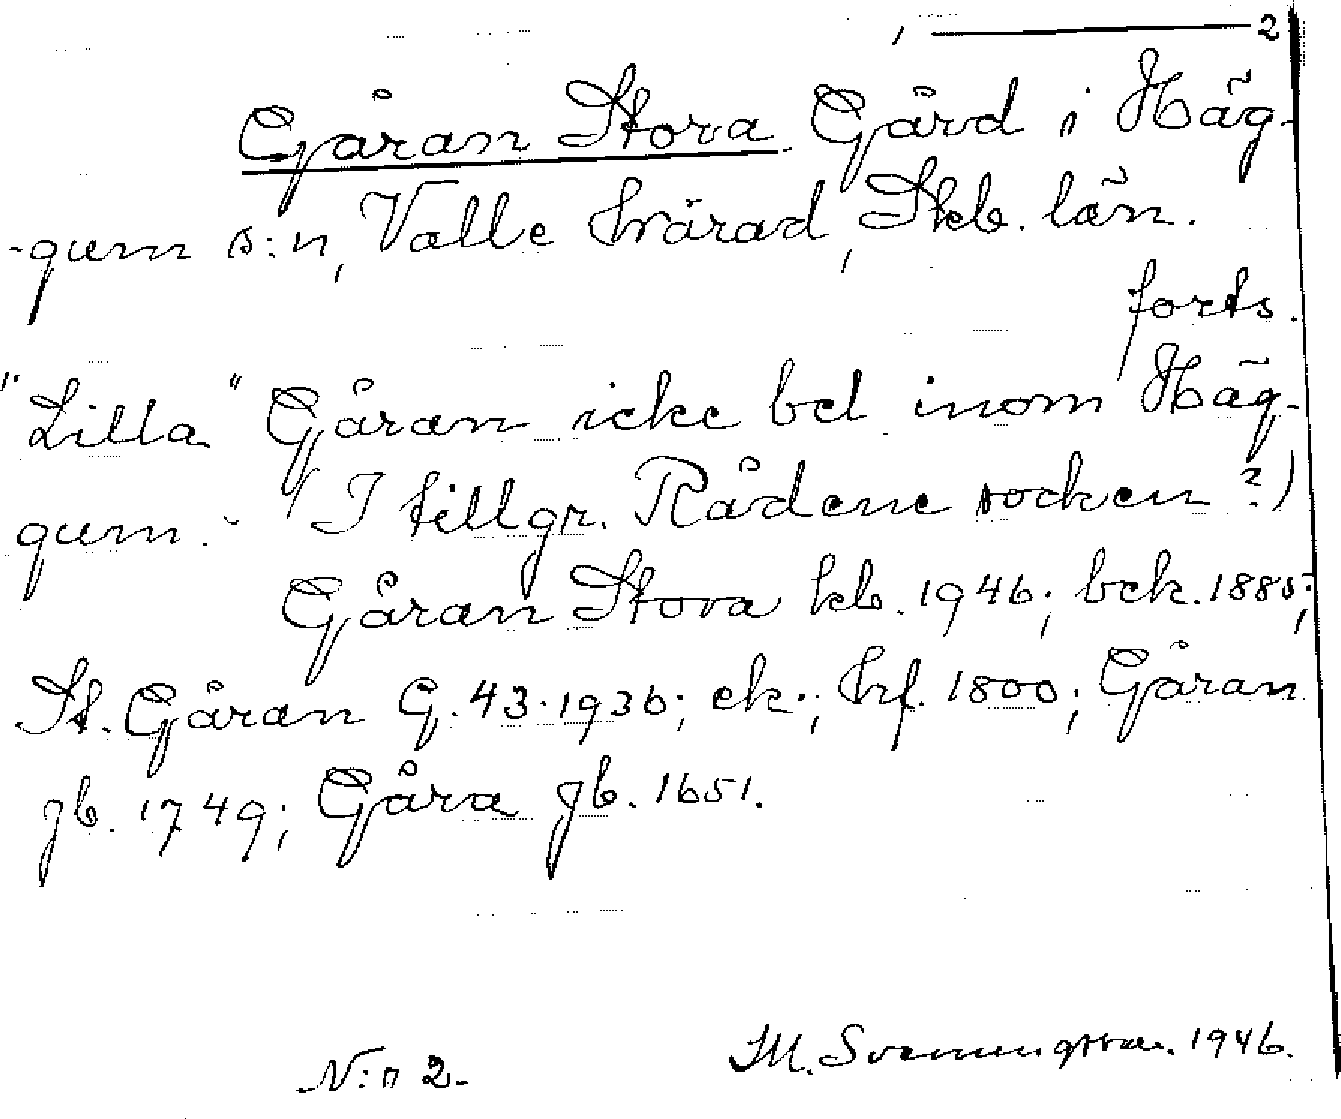 1 — 2
Gåran Stora. Gård i Häg-
-gum s:n, Valle härad, Skb. län.
forts.
"Lilla" Gåran icke bel. inom Häg-
gum. (I tillgr. Rådene socken?)
Gåran Stora kb. 1946; bek. 1885;
St. Gåran G. 43. 1936; ek.; hf. 1800; Gåran
jb. 1749; Gåra jb. 1651.
N:o 2. M. Svenungsson. 1946.